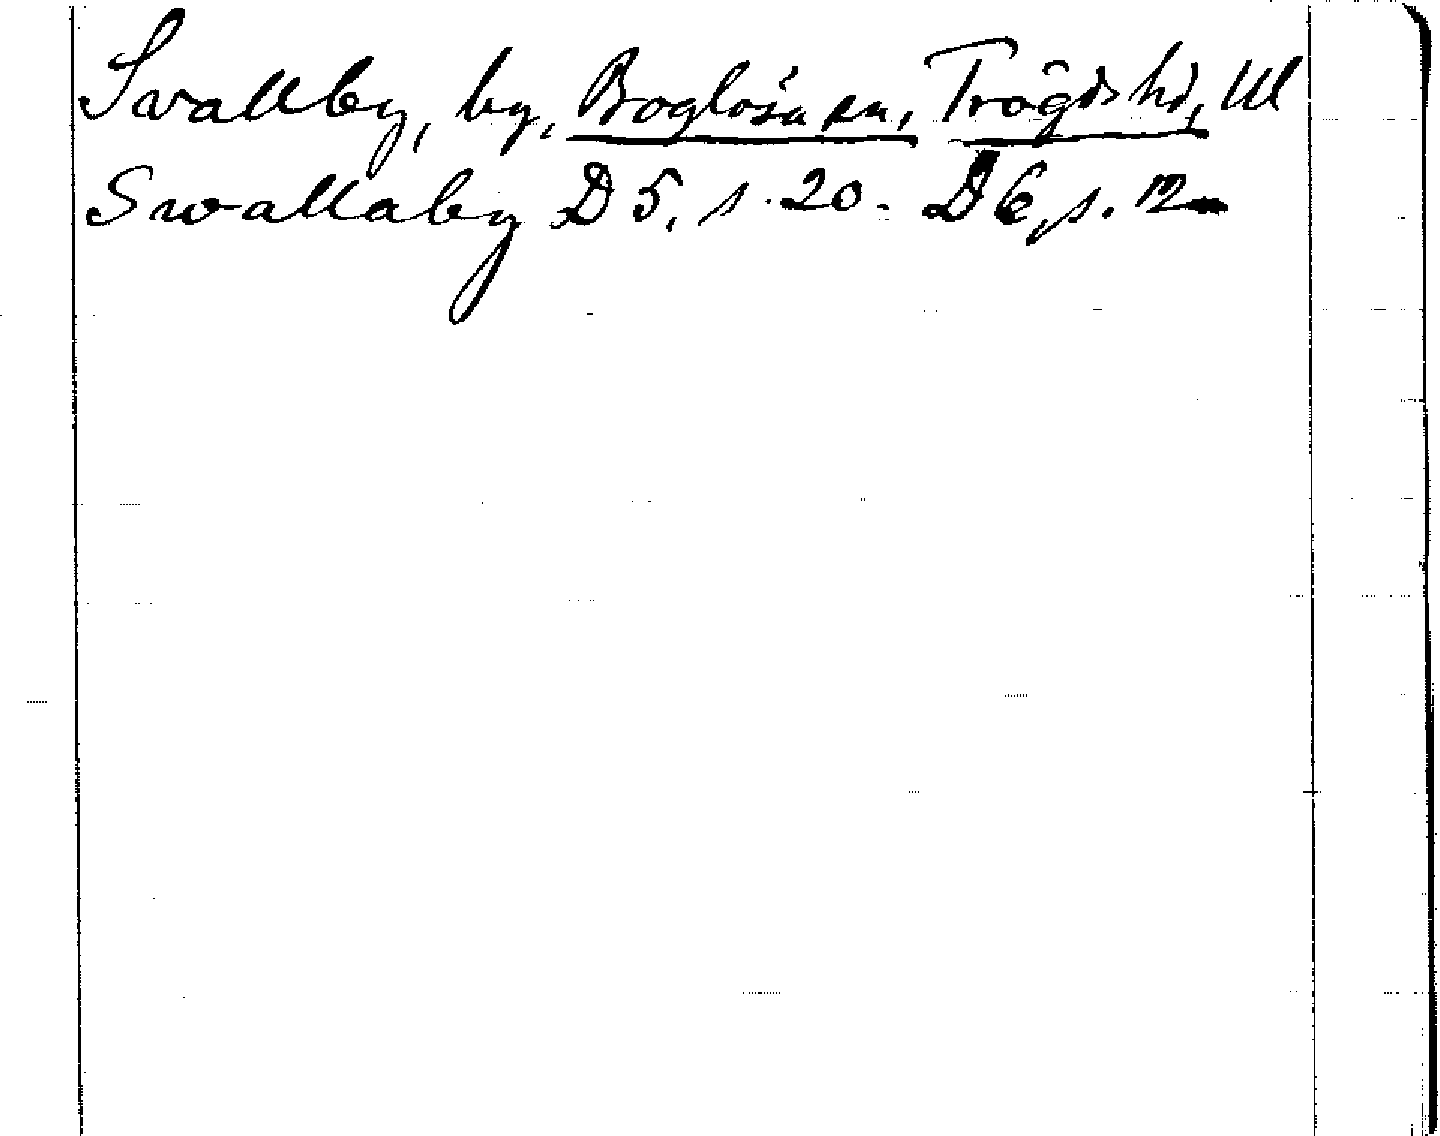 Svallby, by, Boglösa sn, Trögds hd, Ul
Swallaby D 5, s. 20. D 6, s. 12